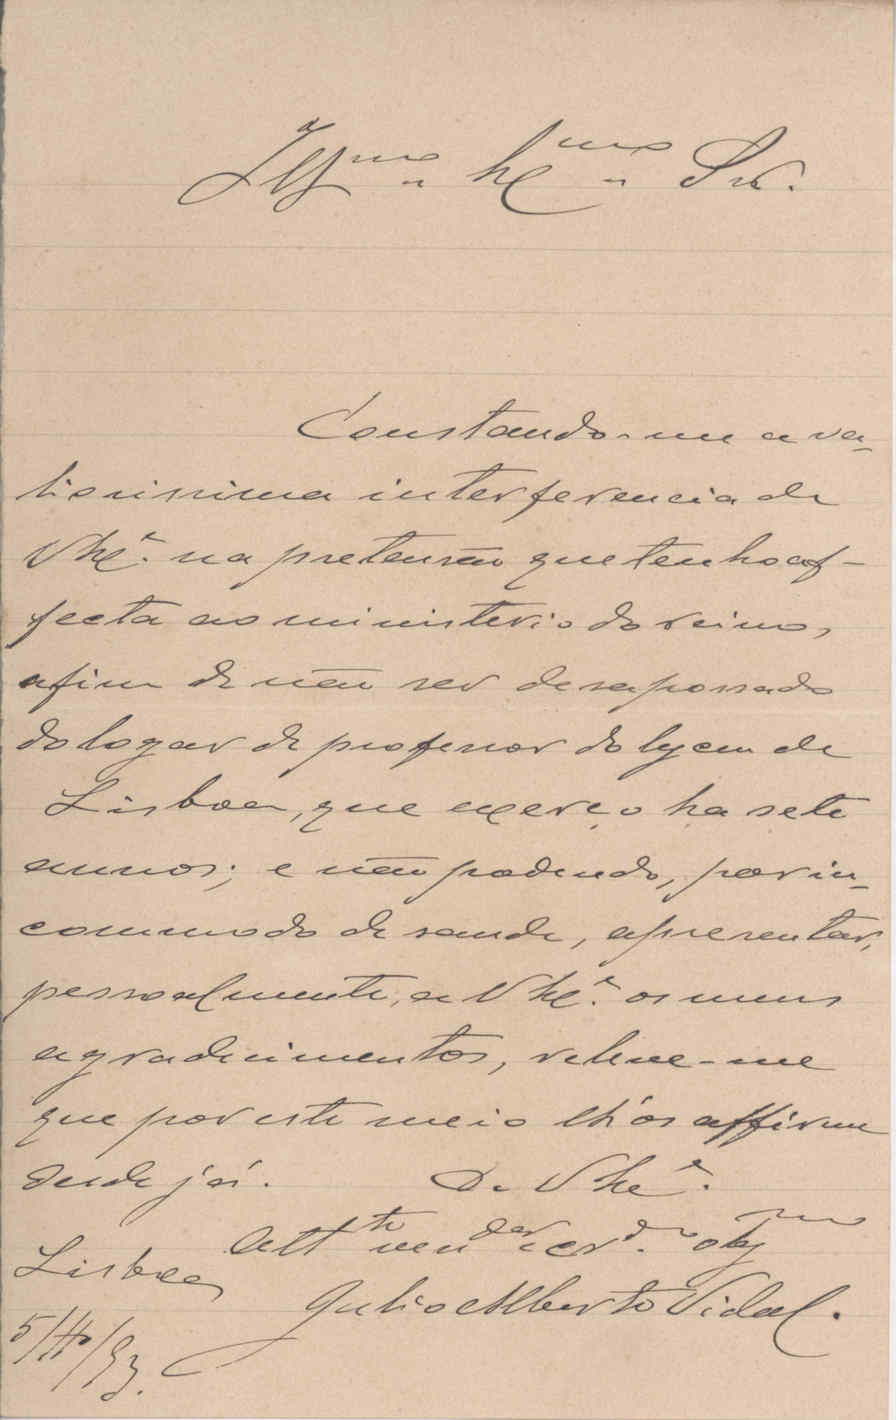 Ill.mo Ex.mo Sr.
Constando-me a va-
liosissima interferencia de
V Ex.ª na pretensão que tenho af-
fecta ao ministerio do reino,
afim de não ser desapossado
do logar de professor do lyceu de
Lisboa, que exerço ha sete
annos; e não podendo, por in-
commodo de saude, apresentar,
pessoalmente, a V Ex.ª os meus
agradecimentos, releve-me
que por este meio lh'os affirme
desde já. De V Ex.ª
Att.to ven.dor cr.do obg.mo
Lisboa
Julio Alberto Vidal.